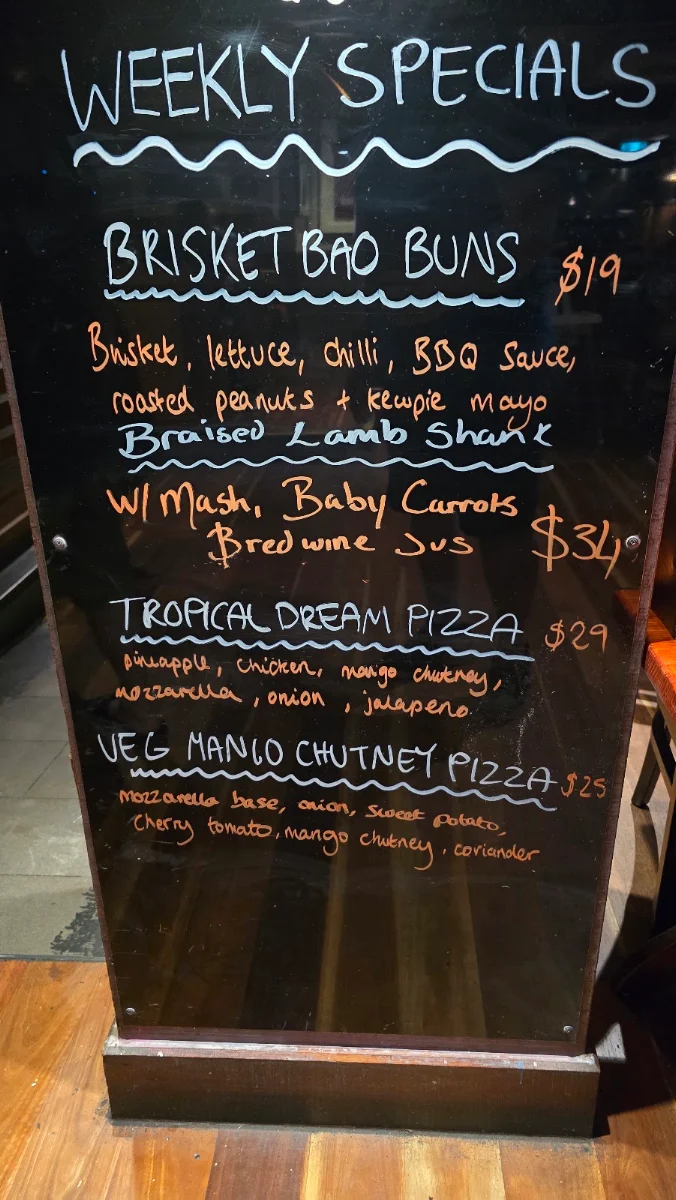 WEEKLY SPECIALS
BRISKET BAO BUNS $19
Brisket, lettuce, chilli, BBQ Sauce,
roasted peanuts + kewpie mayo
Braised Lamb Shank
W/ Mash, Baby Carrots
$ red wine Jus $34
TROPICAL DREAM PIZZA $29
pineapple, chicken, mango chutney,
mozzarella, onion, jalapeno
VEG MANGO CHUTNEY PIZZA $25
mozzarella base, onion, sweet potato,
cherry tomato, mango chutney, coriander